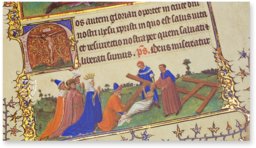 os autem gloriari oportet in cruce dni
nostri ihesu xpisti in quo est salus uita
et resurrectio nostra per quem saluati et
liberati sumus. ps. Deus misereatur